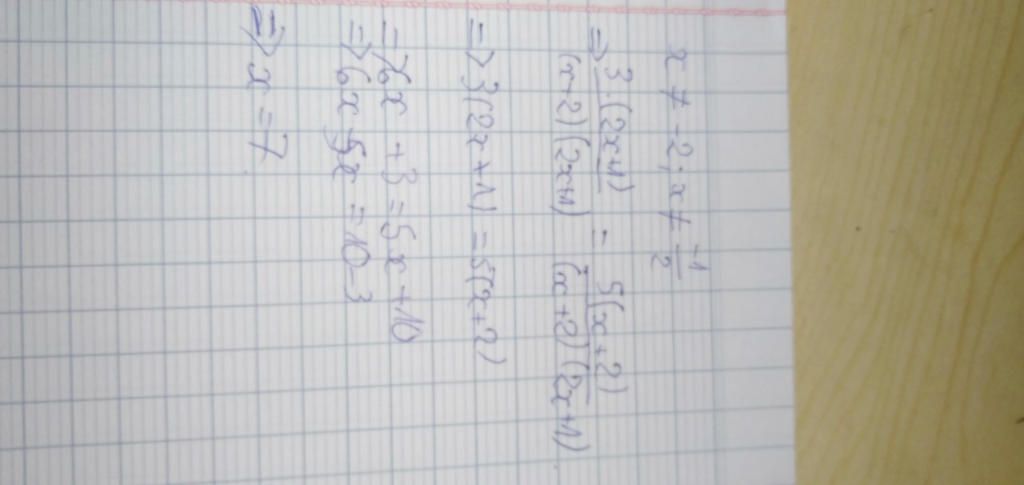 x ≠ -2; x ≠ -1/2
⇒ 3.(2x+1)/(x+2)(2x+1) = 5(x+2)/(x+2)(2x+1)
⇒ 3(2x+1) = 5(x+2)
⇒ 6x + 3 = 5x + 10
⇒ 6x - 5x = 10 - 3
⇒ x = 7